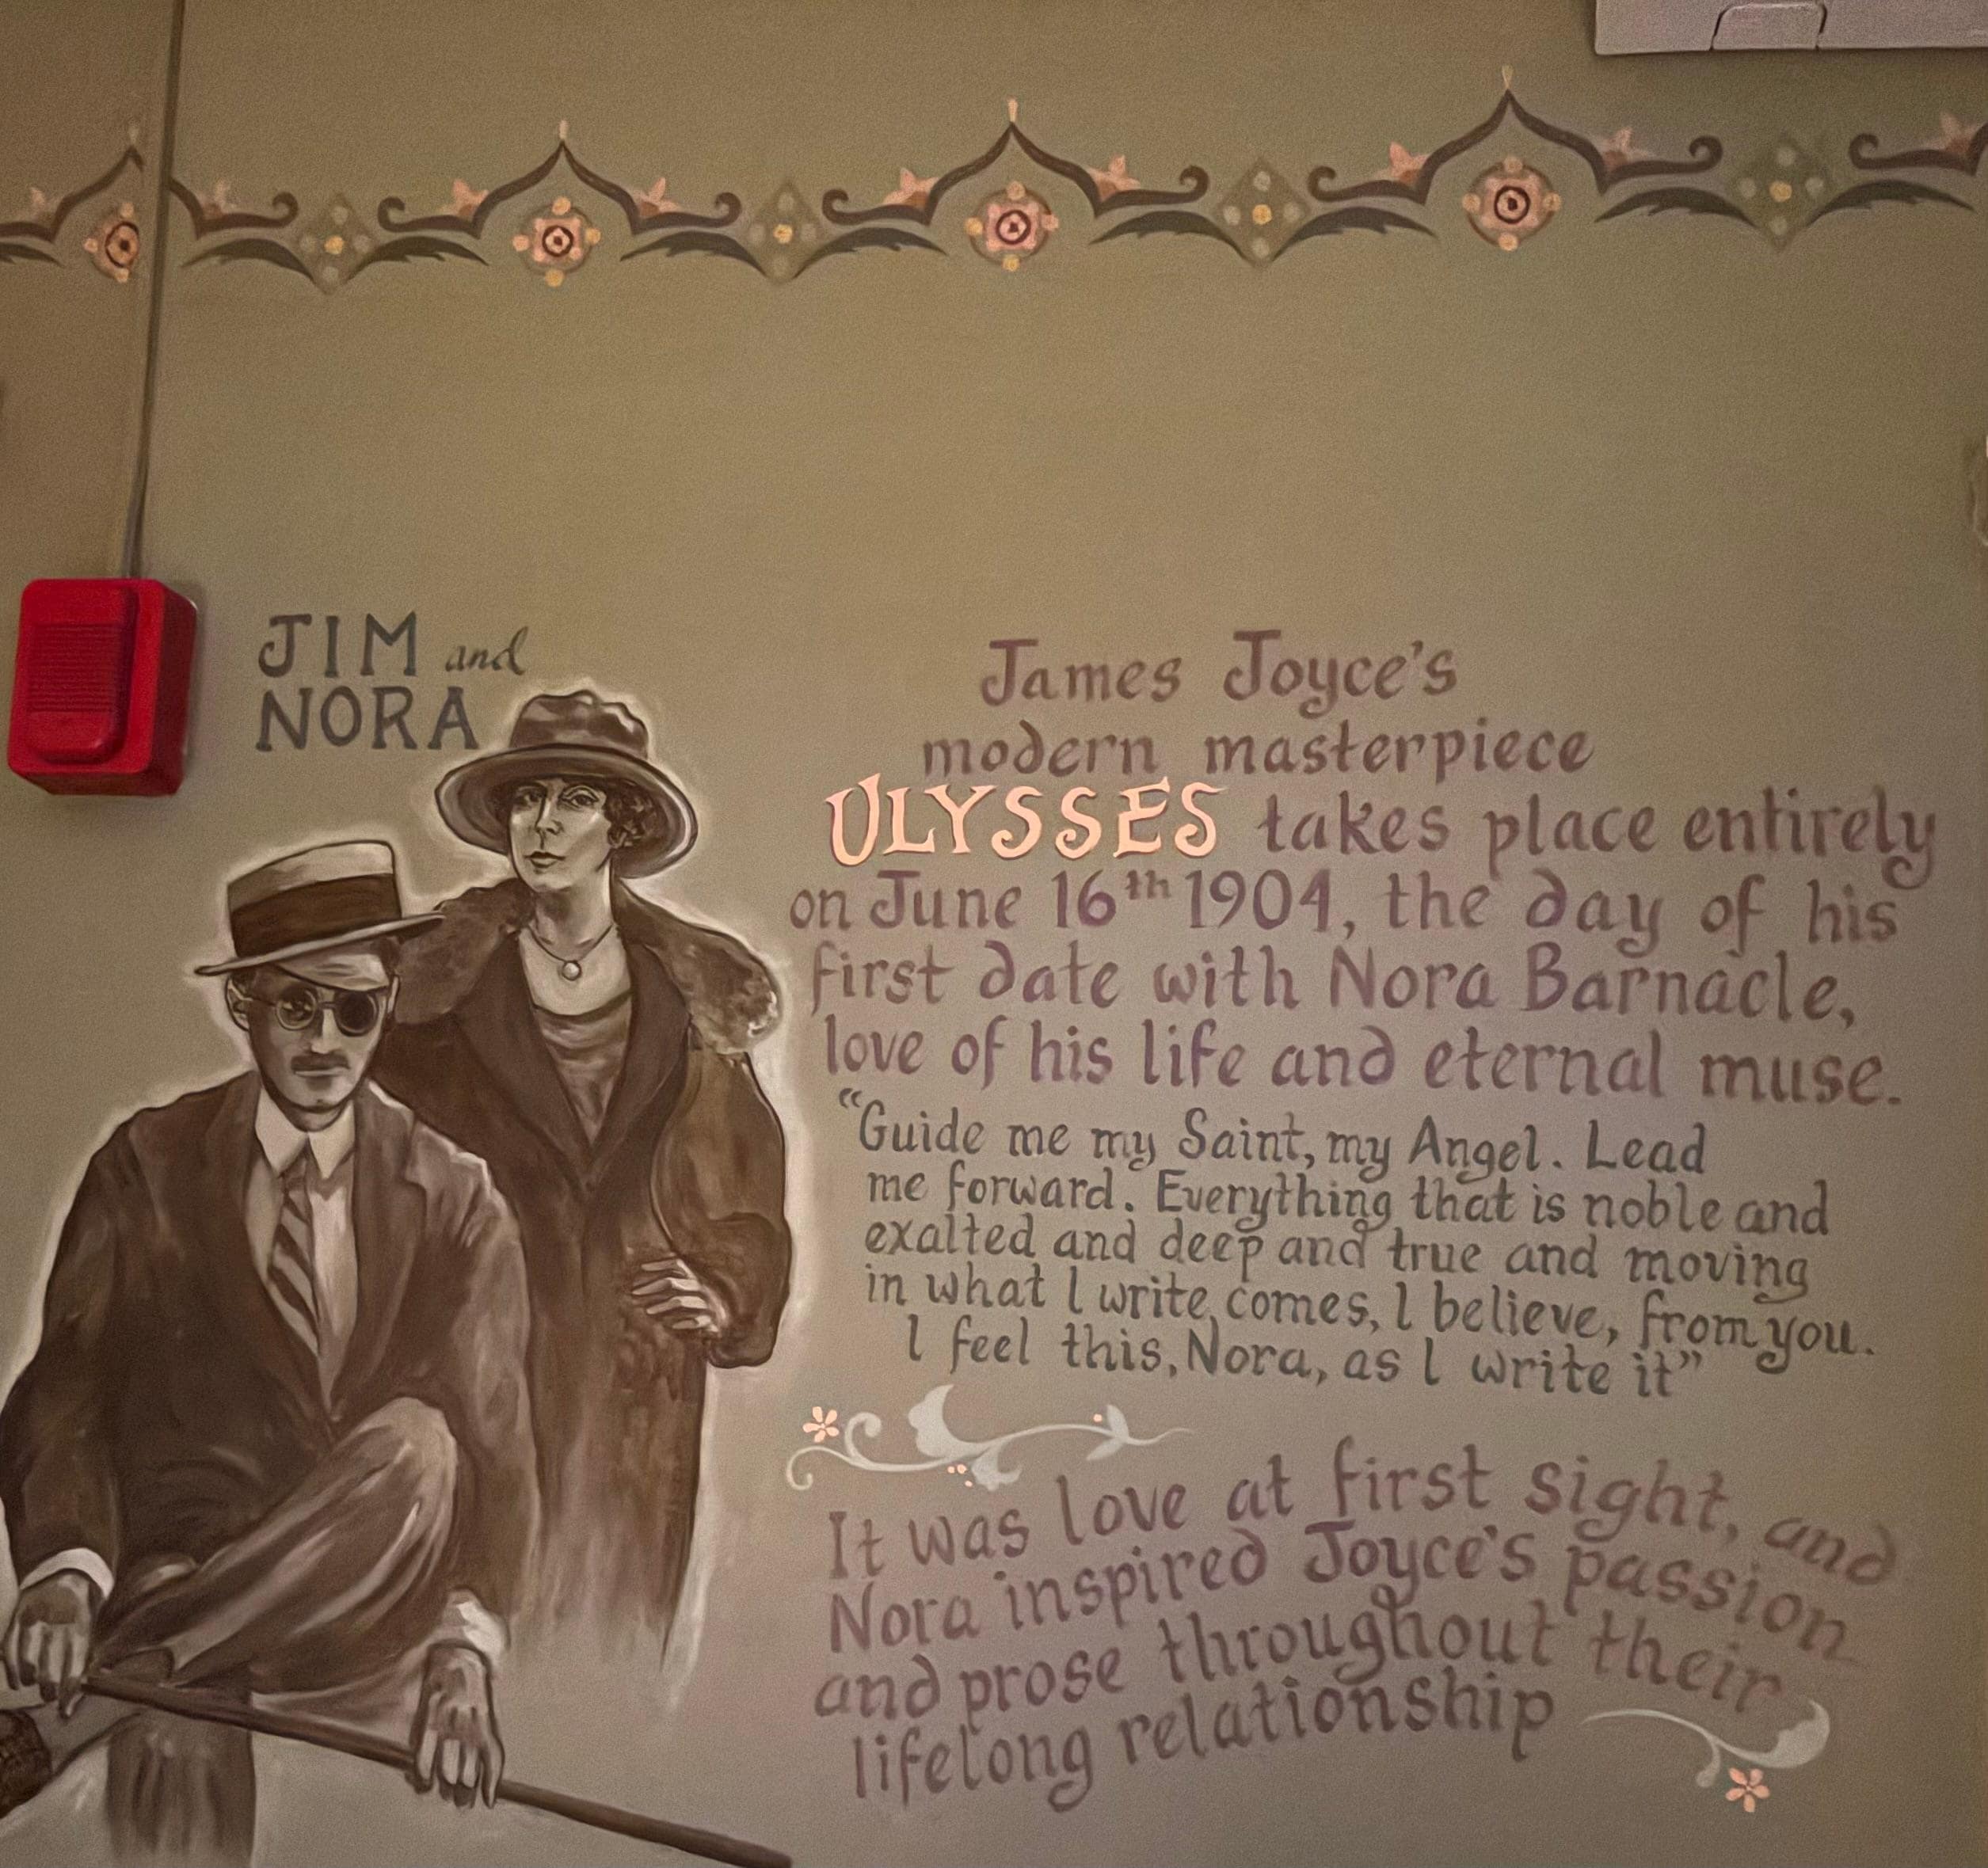 JIM and
NORA
James Joyce's
modern masterpiece
ULYSSES takes place entirely
on June 16th 1904, the day of his
first date with Nora Barnacle,
love of his life and eternal muse.
“Guide me my Saint, my Angel. Lead
me forward. Everything that is noble and
exalted and deep and true and moving
in what I write comes, I believe, from you.
I feel this, Nora, as I write it”
It was love at first sight, and
Nora inspired Joyce's passion
and prose throughout their
lifelong relationship